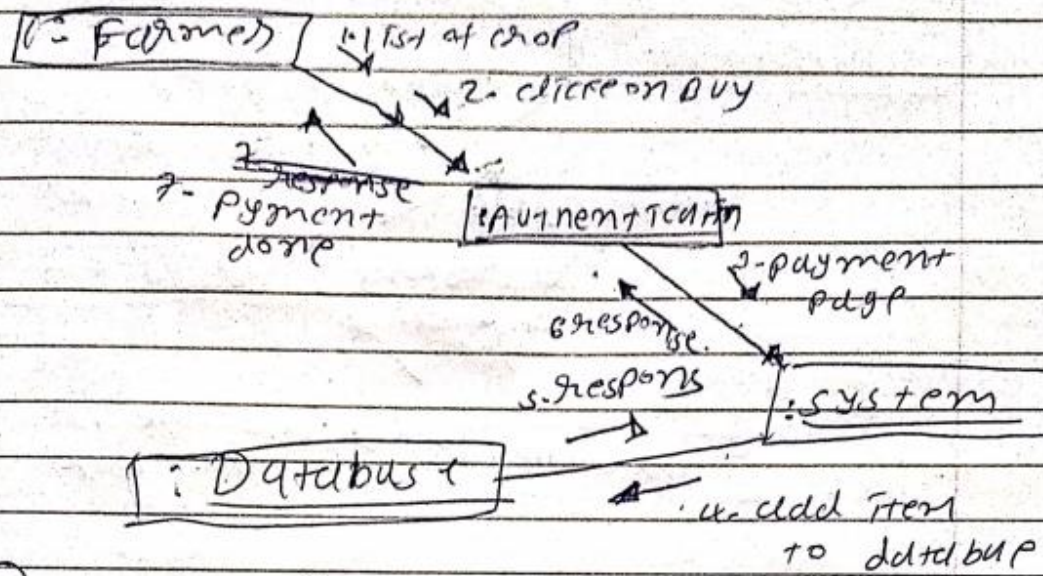 : Farmer
1. list of crop
2. click on Buy
7. response
7- Pyment
done
:Authentication
3-payment
page
6 response.
5. respons
: system
: Database
4. add item
to database